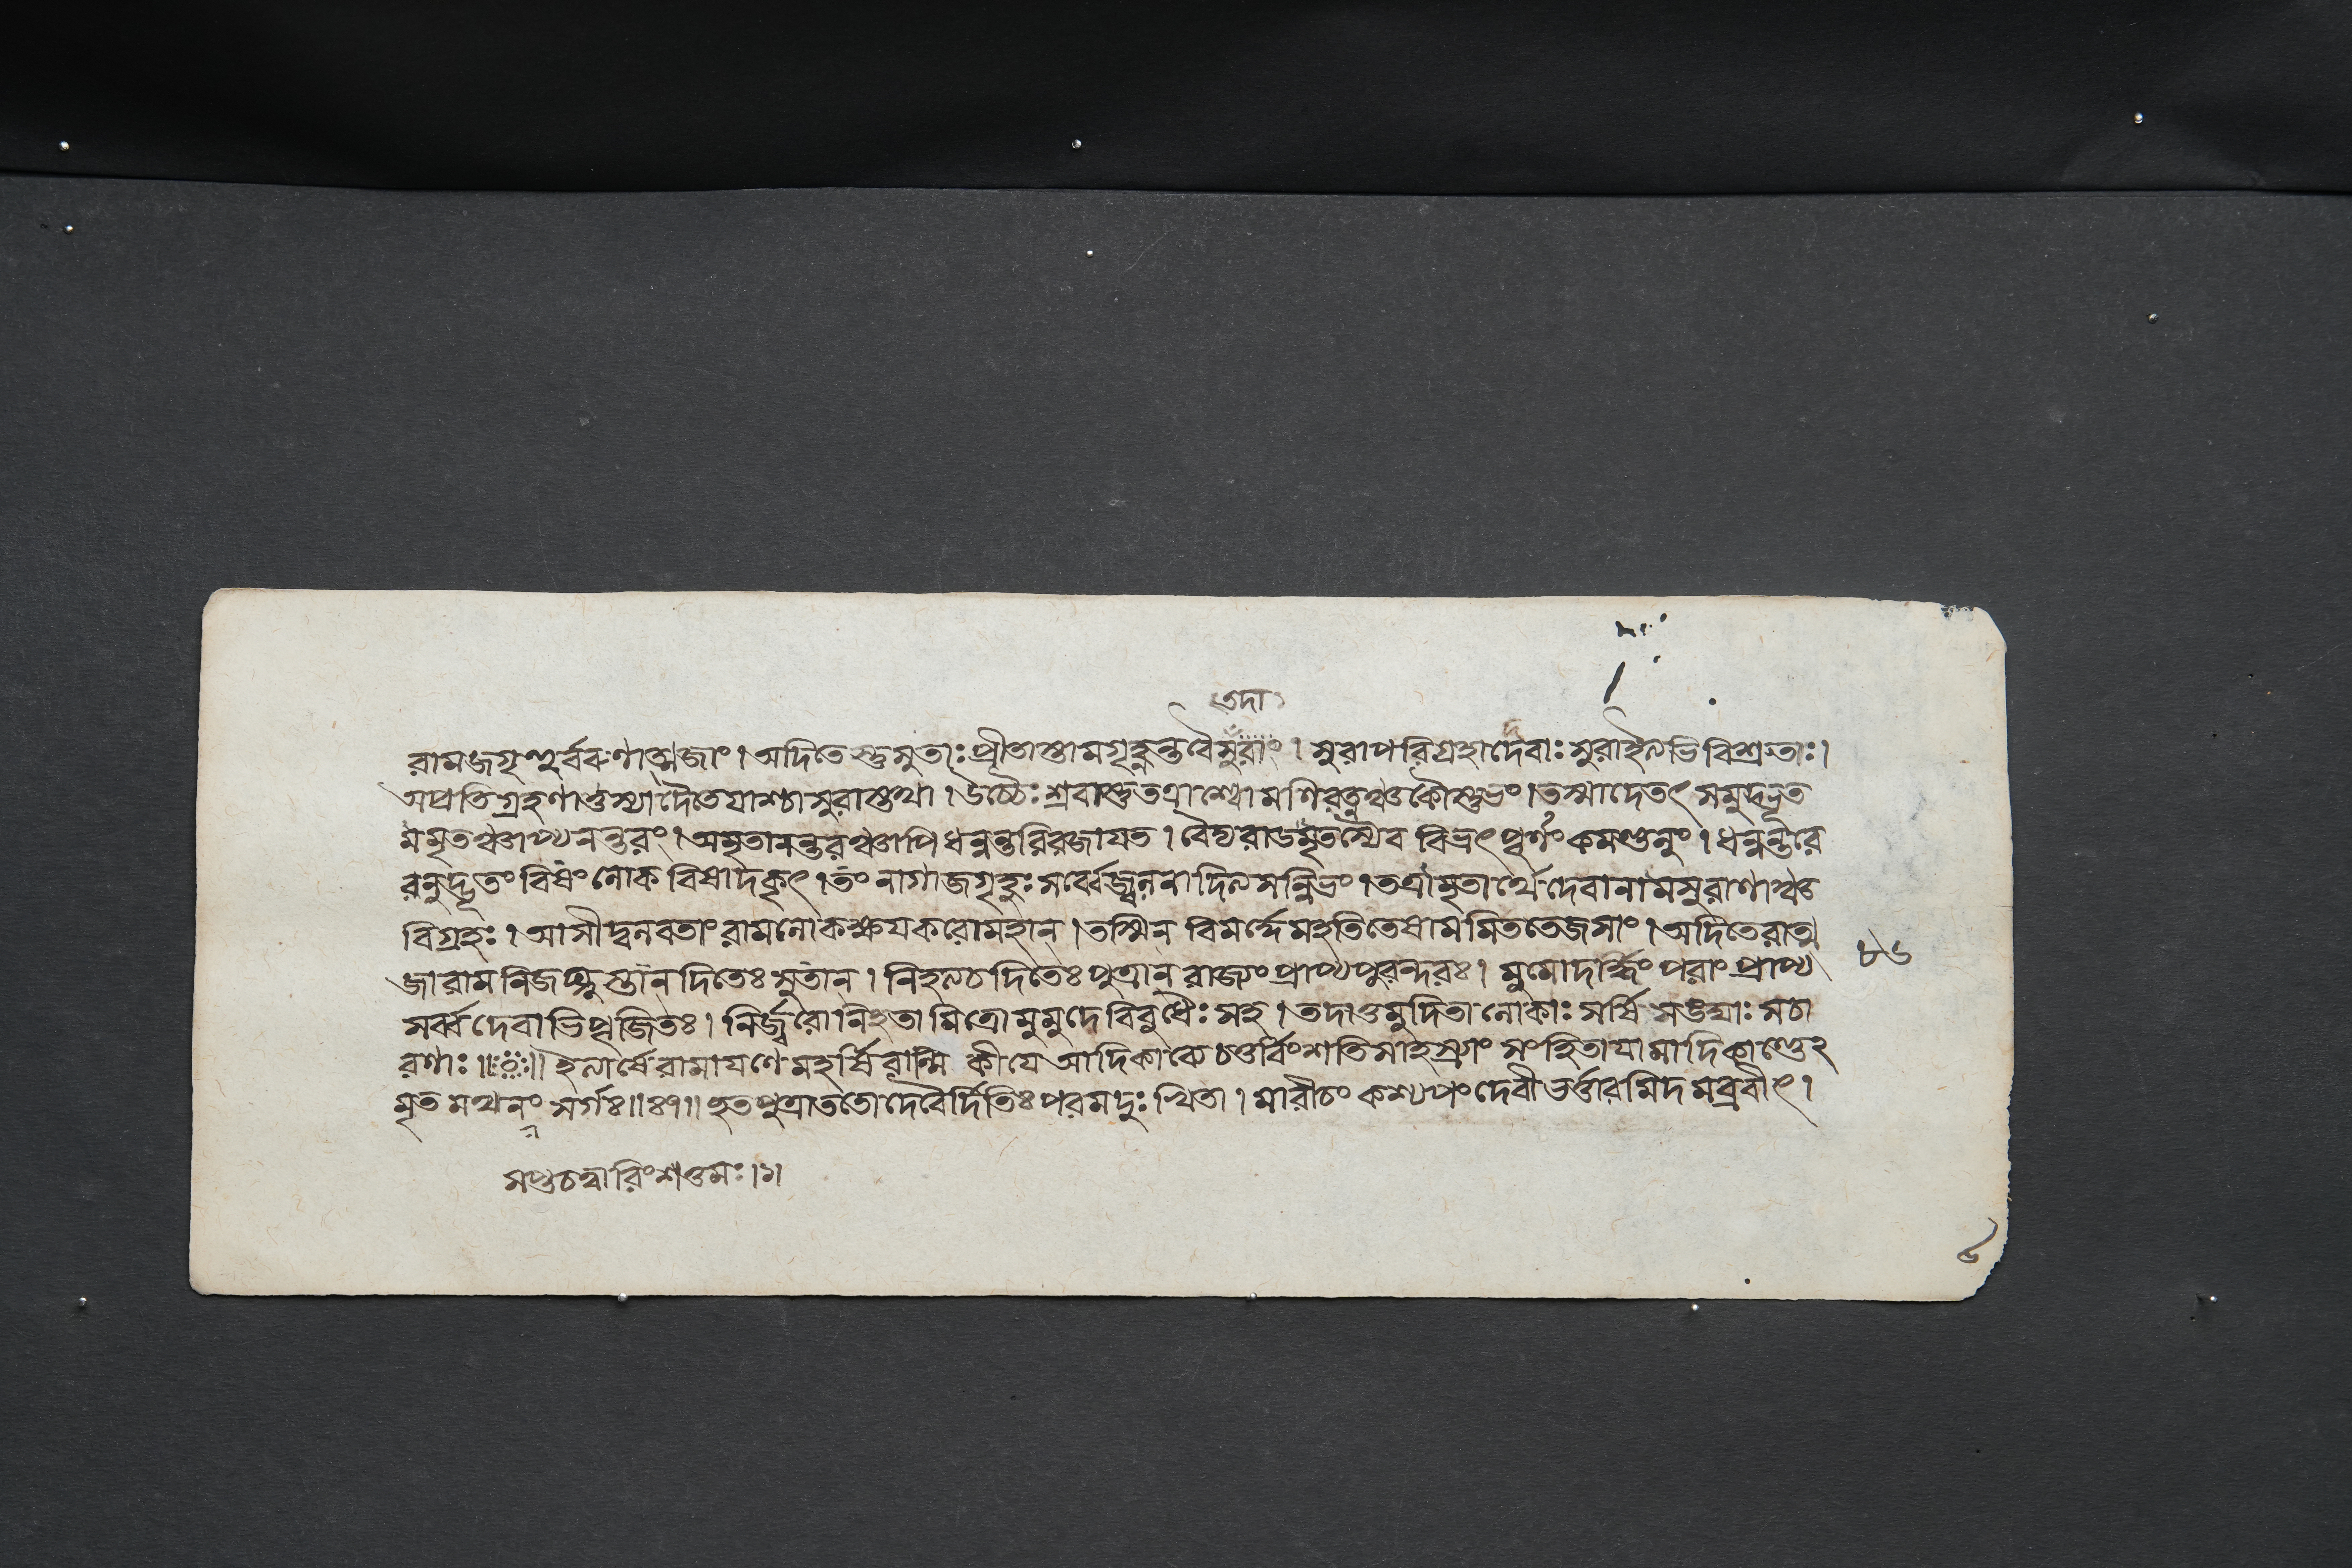 তদা
রামজগৃহুর্ব্বরুণাত্মজাং। অদিতেস্তুসুতাঃপ্রীতাস্তামগৃহ্নন্তবৈসুরাং। সুরাপরিগ্রহাদেবাঃসুরাইত্যভিবিশ্রুতাঃ।
অপ্রতিগ্রহণাত্তস্যাদৈতেয়াশ্চাসুরাস্তথা। উচ্চৈঃশ্রবাস্তুতত্রাশ্বোমণিরত্নঞ্চকৌস্তুভং।তস্মাদেতৎসমুদ্ভূত
মমৃতঞ্চাপ্যনন্তরং। অমৃতানন্তরঞ্চাপিধন্বন্তরিরজায়ত। বৈদ্যরাডমৃতস্যৈব বিভ্রৎপূর্ণং কমণ্ডলুং। ধন্বন্তরে
রনুদ্ভূতং বিষং লোকবিষাদকৃৎ।তং নাগাজগৃহুঃসর্ব্বেজ্বলনাদিত্যসন্নিভং।তত্রামৃতার্থেদেবানামসুরাণাঞ্চ
বিগ্রহঃ। আসীদ্বলবতাং রামলোকক্ষয়করোমহান্।তস্মিন্ বিমর্দ্দেমহতিতেষামমিততেজসাং। অদিতেরাত্ম
জারামনিজঘ্নুস্তান্দিতেঃসুতান্। নিহত্যচদিতেঃপুত্রান্ রাজ্যংপ্রাপ্যপুরন্দরঃ। মুমোদর্দ্ধিং পরাং প্রাপ্য
সর্ব্বদেবাভিপূজিতঃ। নির্জ্বরোনিহতামিত্রোমুমুদেবিবুধৈঃসহ। তদাতুমুদিতালোকাঃসর্ষিসঙ্ঘাঃসচা
রণাঃ॥ ॥ইত্যার্ষেরামায়ণেমহর্ষিবাল্মিকীয়েআদিকাব্যেচতুর্বিংশতিসাহস্র্যাং সংহিতায়ামাদিকাণ্ডেঽ
মৃতমথনং সর্গঃ॥৪৭॥হতপুত্রাততোদেবৈর্দিতিঃপরমদুঃখিতা। মারীচং কশ্যপংদেবীভর্ত্তারমিদমব্রবীৎ।
৮৬
সপ্তচত্বারিংশত্তমঃ।১।